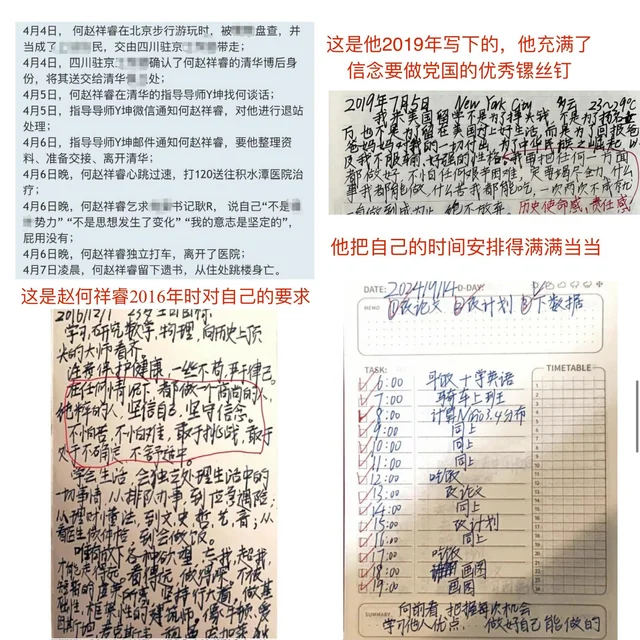 4月4日，何赵祥睿在北京步行游玩时，被 盘查，并
当成了 民，交由四川驻京 带走；
4月4日，四川驻京 确认了何赵祥睿的清华博后身
份，将其送交给清华 处；
4月5日，何赵祥睿在清华的指导导师Y坤找何谈话；
4月5日，指导导师Y坤微信通知何赵祥睿，对他进行退站
处理；
4月6日，指导导师Y坤邮件通知何赵祥睿，要他整理资
料、准备交接、离开清华；
4月6日晚，何赵祥睿心跳过速，打120送往积水潭医院治
疗；
4月6日晚，何赵祥睿乞求 书记耿R， 说自己“不是
势力” “不是思想发生了变化” “我的意志是坚定的”，
屁用没有；
4月6日晚，何赵祥睿独立打车，离开了医院；
4月7日凌晨，何赵祥睿留下遗书，从住处跳楼身亡。
这是赵何祥睿2016年时对自己的要求
学习、研究数学，物理，向历史上顶
尖的大师看齐
注意保护健康，一丝不苟，严于律己。
在任何情况下，都做一个高尚的人，
纯粹的人，坚信自己，坚守信念。
不怕苦，不怕难，敢于挑战，敢于
学会生活，会独立处理生活中的
一切事情，从排队办事，到应急避险；
从理财懂法，到文、史、哲、艺、音；从
看医生做体检到会做饭。
这是他2019年写下的，他充满了
信念要做党国的优秀镙丝钉
2019年7月5日 New York City 多云 23~29℃
我来美国留学不是为了挣大钱，不是为了扬名立
万，也不是为了留在美国过上好生活，而是为了回报爸
爸妈妈对我的一切付出，为了中华民族之崛起，以
及我不服输，好强的性格。我要把任何一方面
都做好，不怕任何艰辛困难，只要竭尽全力，什么
事我都能做，什么苦我都能吃，一次两次不成就
历史使命感，责任感
他把自己的时间安排得满满当当
DATE: 2024/9/14 D-DAY:
MEMO ①改论文 ②改计划 ③下数据
TASK: TIMETABLE
6:00 早饭+学英语
7:00 骑车上班
8:00 计算 3.4分布
9:00 同上
10:00 同上
11:00 同上
12:00 吃饭
13:00 改论文
14:00 同上
15:00 改计划
16:00 同上
17:00 吃饭
18:00 画图
19:00 画图
SUMMARY 向前看，把握每次机会
学习他人优点，做好自己能做的